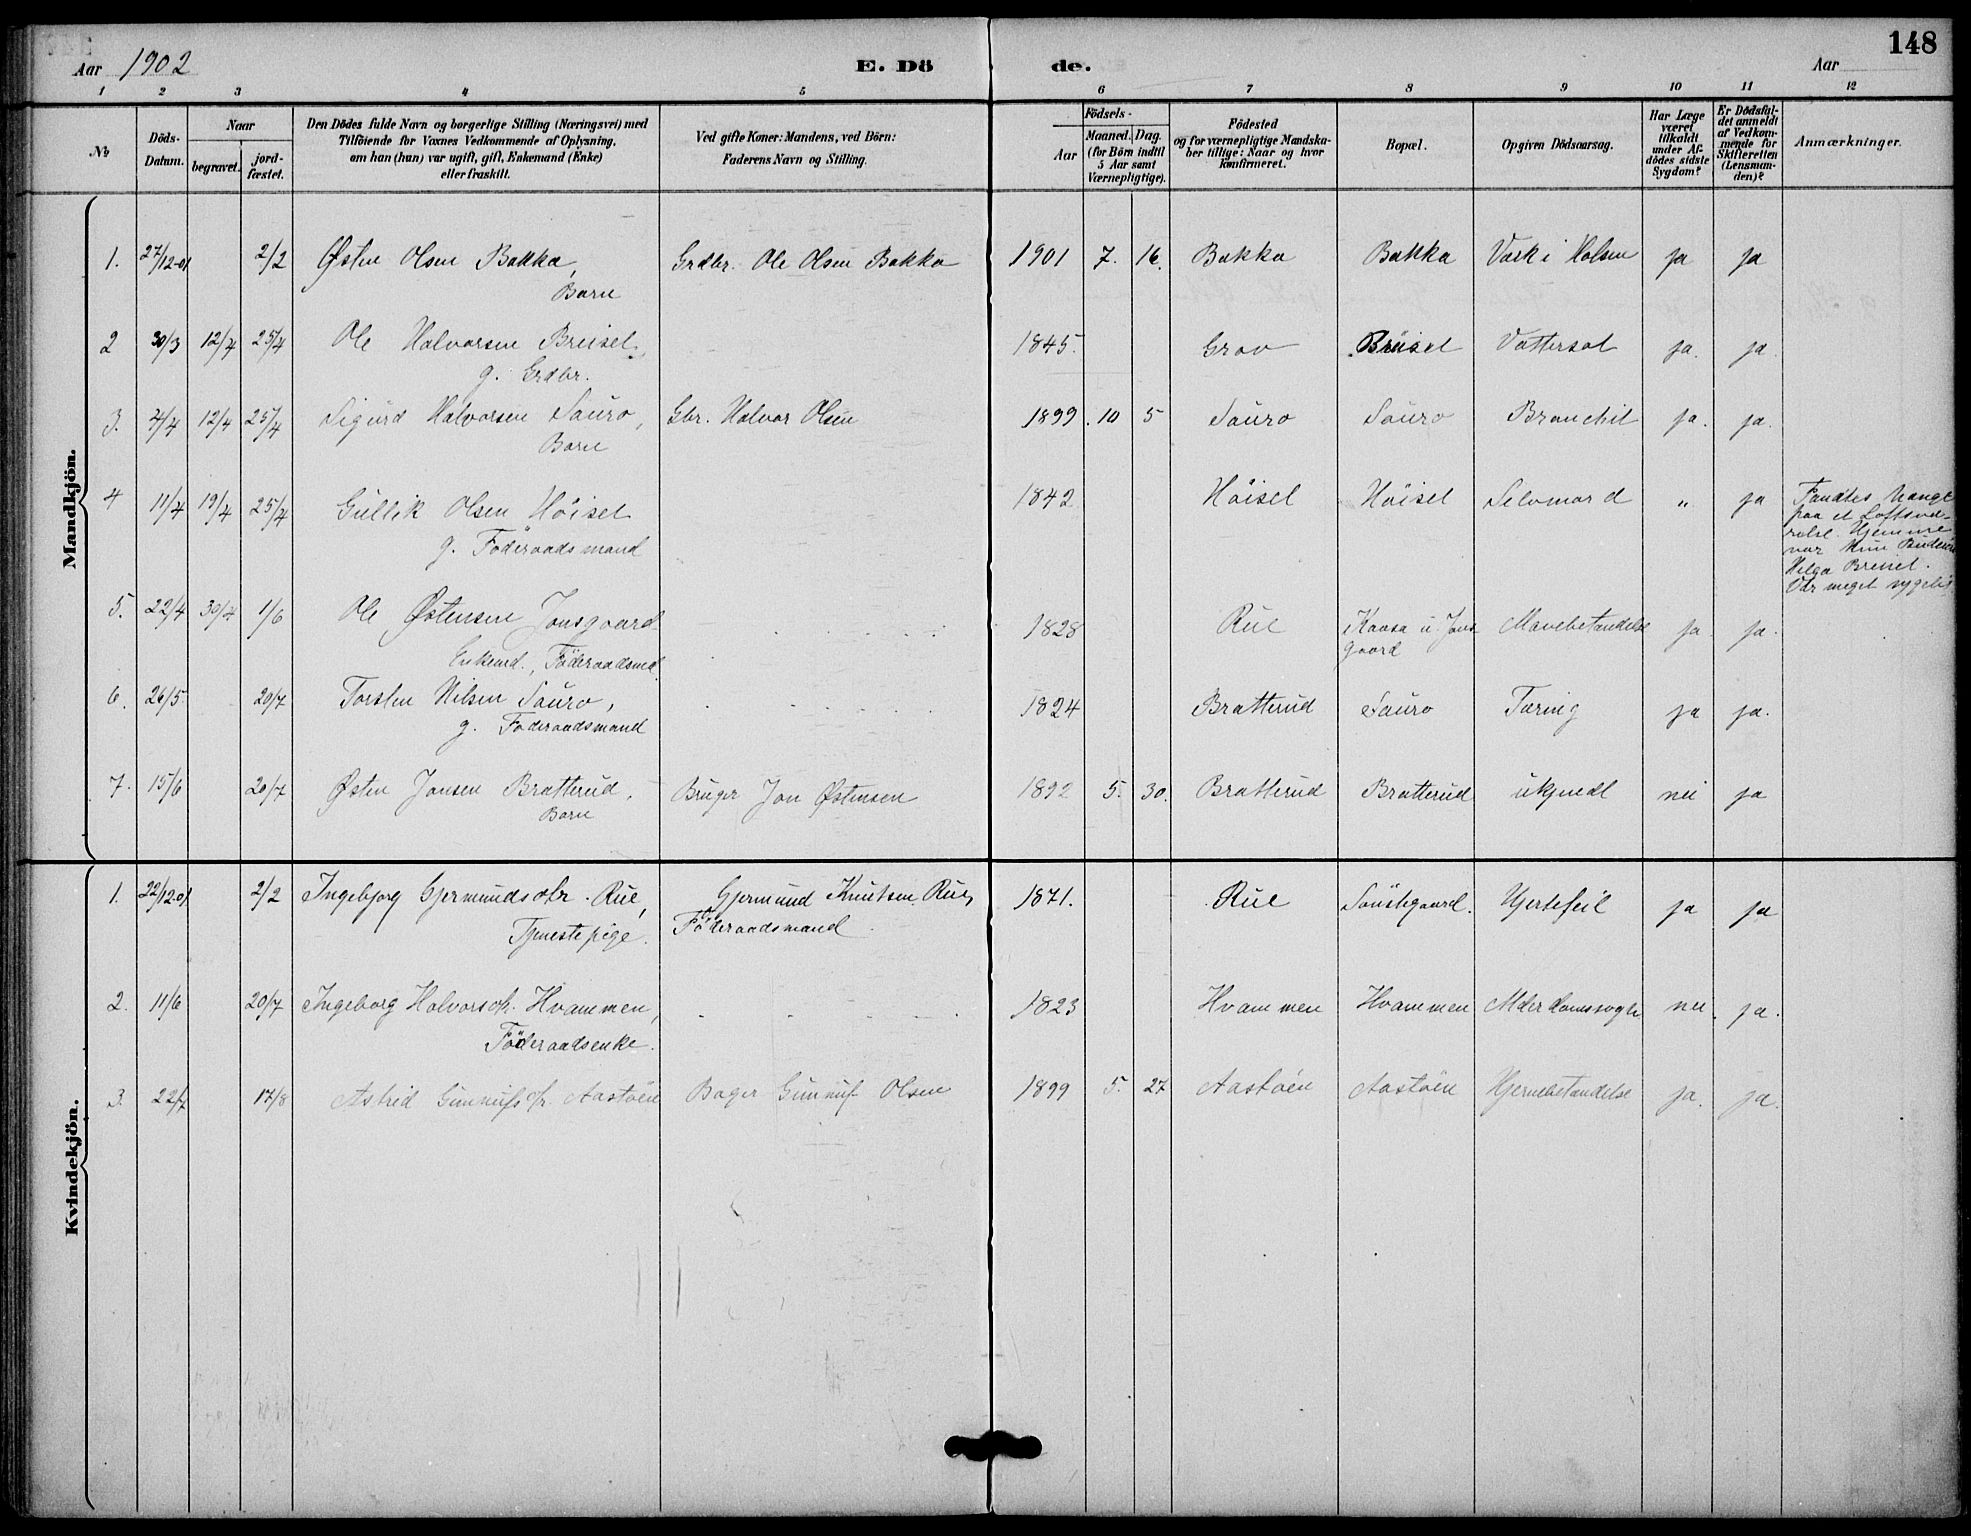 148
Aar 1902 E. Dö de. Aar
1 2 3 4 5 6 7 8 9 10 11 12
No
Döds-Datum.
Naar
begravet.
jord-fæstet.
Den Dödes fulde Navn og borgerlige Stilling (Næringsvei) med
Tilföiende for Voxnes Vedkommende af Oplysning,
om han (hun) var ugift, gift, Enkemand (Enke)
eller fraskilt.
Ved gifte Koner: Mandens, ved Börn:
Faderens Navn og Stilling.
Födsels-
Aar
Maaned. Dag.
(for Börn indtil
5 Aar samt
Værnepligtige).
Födested
og for værnepligtige Mandska-
ber tillige: Naar og hvor
konfirmeret.
Bopæl.
Opgiven Dödsaarsag.
Har Læge
været
tilkaldt
under Af-
dödes sidste
Sygdom?
Er Dödsfal-
det anmeldt
af Vedkom-
mende for
Skifteretten
(Lensman-
den)?
Anmærkninger.
Mandkjön.
1. 27/12-01 2/2 Østen Olsen Bakka, Grdbr. Ole Olsen Bakka 1901 7. 16. Bakka Bakka Værk i Halsen ja ja
Barn
2 30/3 12/4 25/4 Ole Halvorsen Breisel, 1845. Grov Breisel Vattersot ja. ja.
g. Grdbr.
3. 4/4 12/4 25/4 Sigurd Halvorsen Sauro, Gbr. Halvor Olsen 1899. 10 5 Sauro Sauro Bronchit ja. ja.
Barn
4 11/4 19/4 25/4 Gullik Olsen Höisel 1842 Höisel Höisel Selvmord " ja Fandtes hængt
g. Föderaadsmand
paa et Loftsvæ-
relse. Hjemme
var kun
Helga Breisel.
Var meget sygelig
5. 22/4 30/4 1/6 Ole Østensen Jonsgaard 1828 Rue Kaasa u. Jons Mavebetændelse ja ja.
gaard
Enkemd., Föderaadsmd.
6. 26/5 20/7 Torsten Nilsen Sauro, 1824 Bratterud Sauro Tæring ja ja.
g. Föderaadsmand
7. 15/6 20/7 Østen Jonsen Bratterud, Bruger Jon Østensen 1892 5. 30. Bratterud Bratterud ukjendt nei ja
Barn
Kvindekjön.
1. 22/12-01 2/2 Ingebjorg Gjermundsdtr. Rue, Gjermund Knutsen Rue, 1871. Rue Sönstegaard. Hjertefeil ja ja
Tjenestepige. Föderaadsmand
2. 11/6 20/7 Ingeborg Halvorsdtr. Hvammen, 1823 Hvammen Hvammen Alderdomssvaghed nei. ja.
Föderaadsenke.
3. 22/7 17/8 Astrid Gunnufsdtr. Aastöen Bager Gunnuf Olsen 1899 5. 27 Aastöen Aastöen Hjernebetændelse ja. ja.